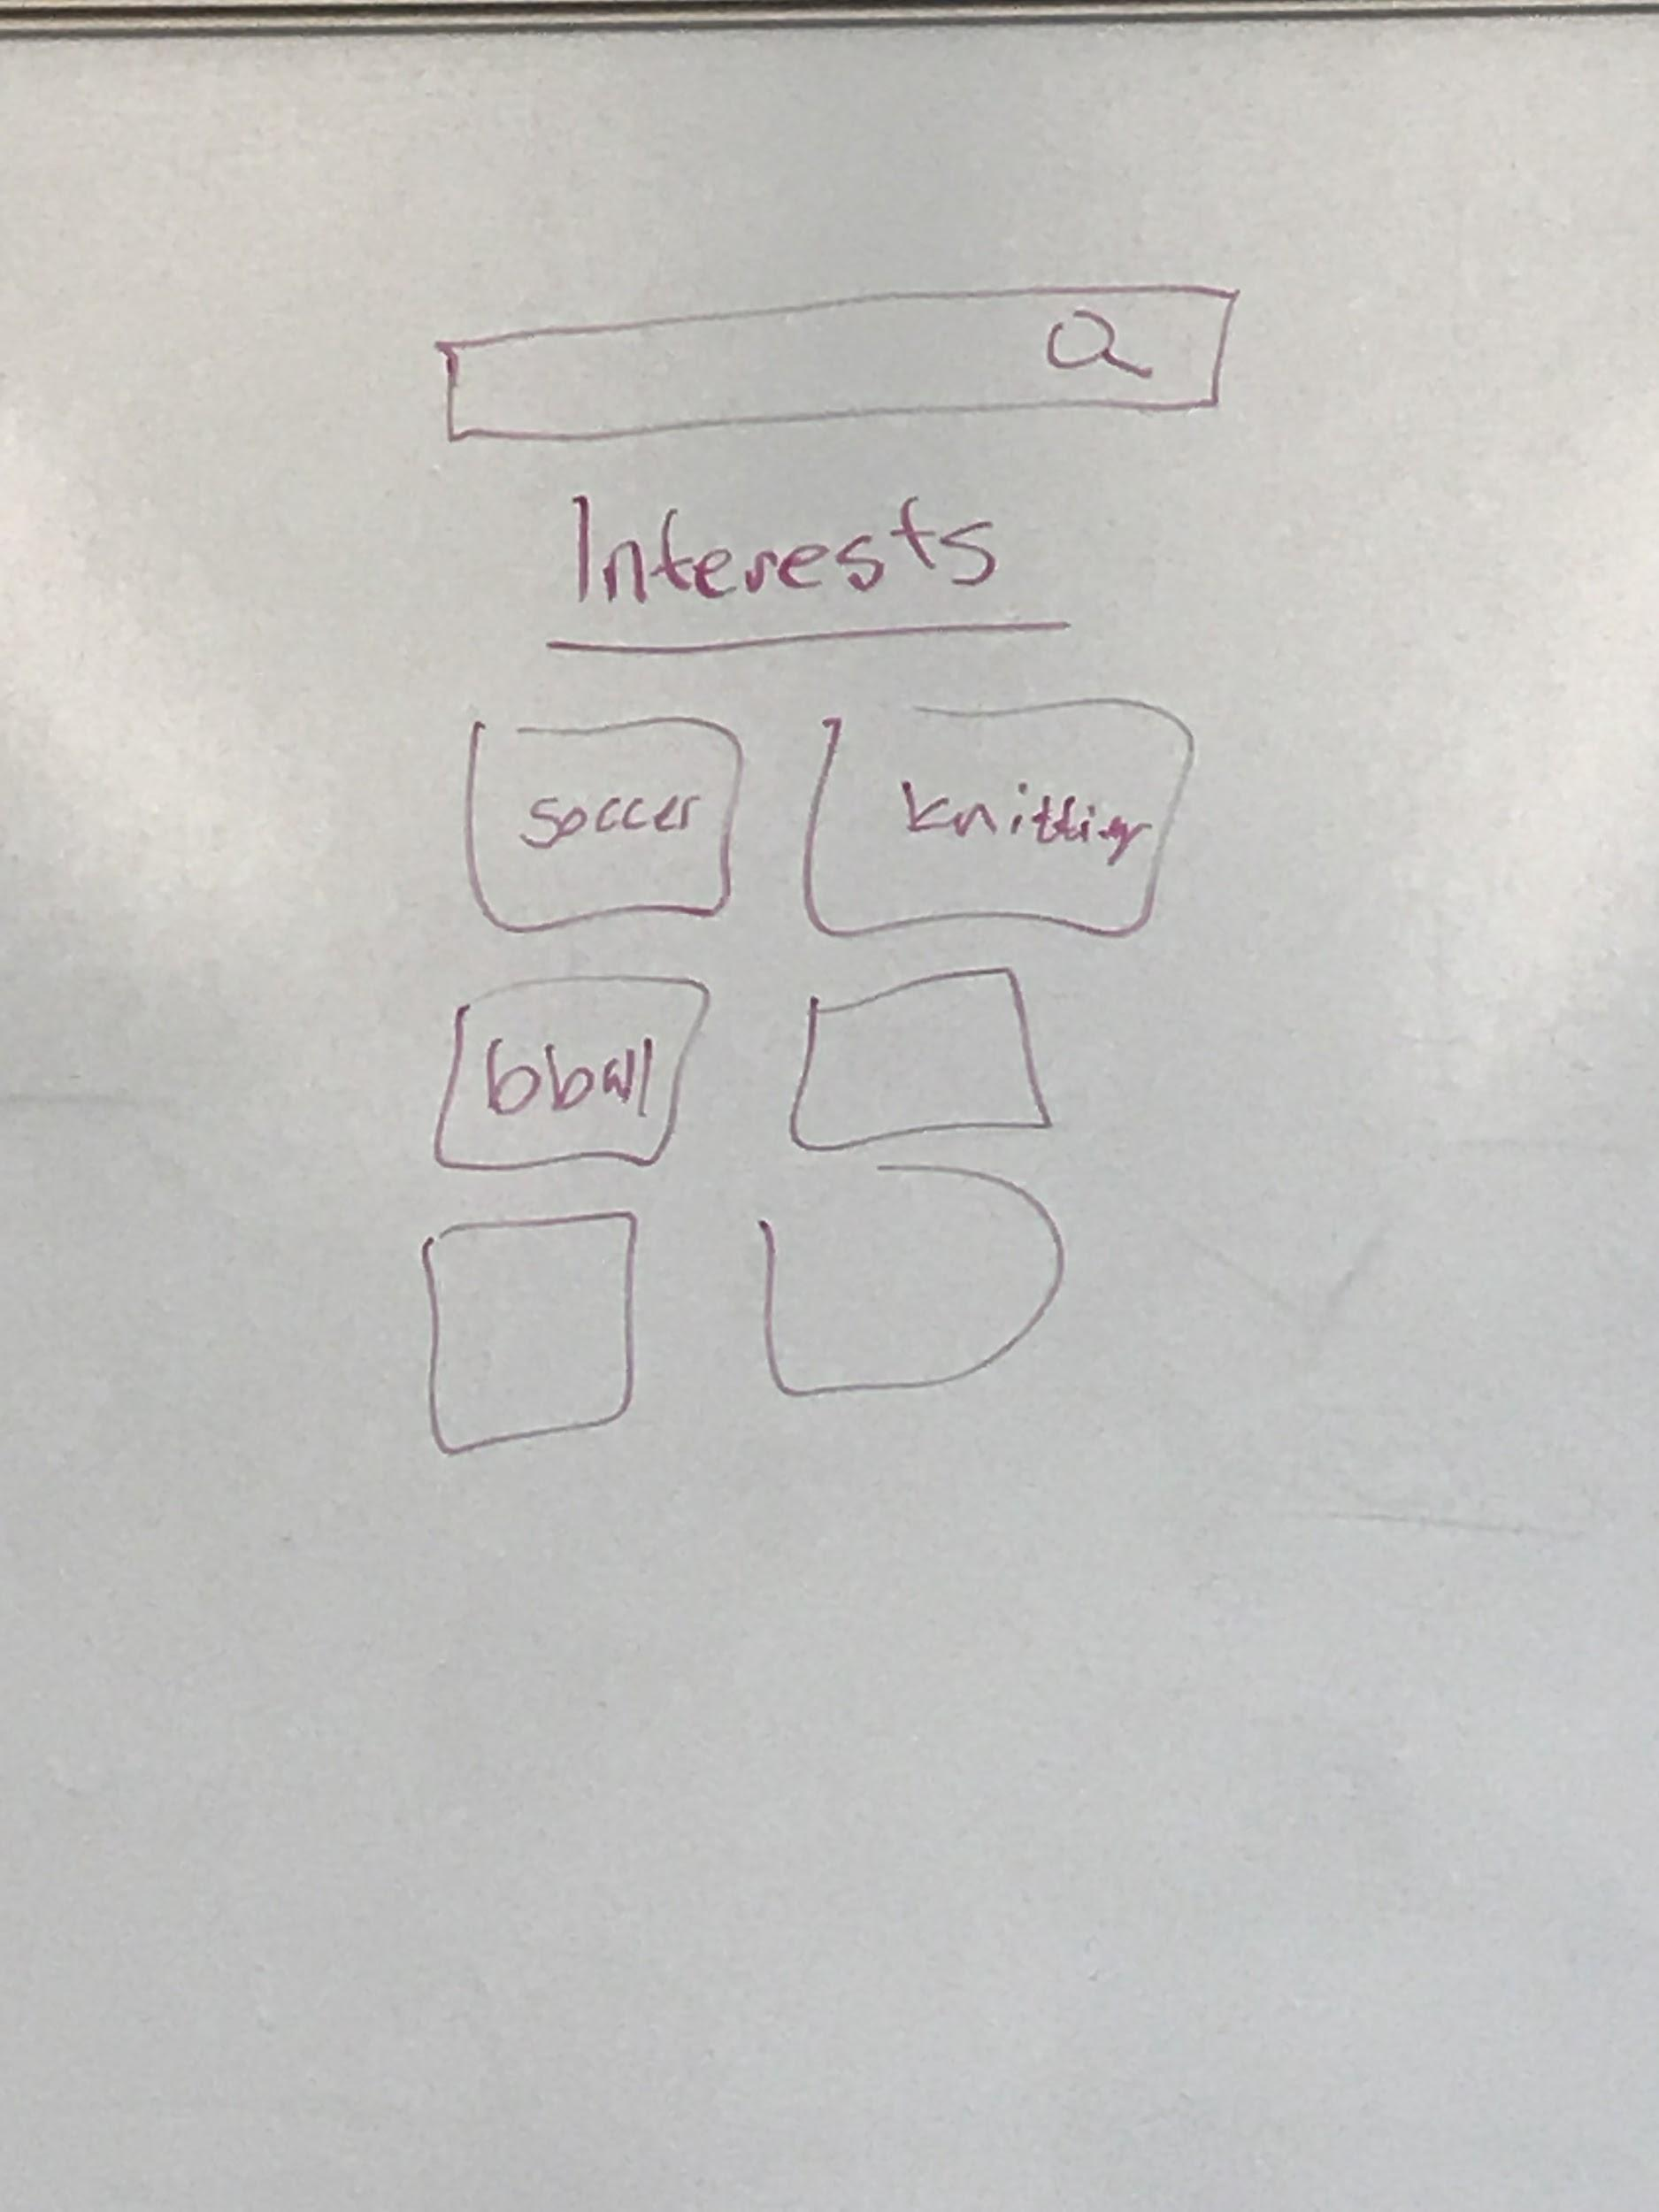 Interests
soccer
knitting
bball